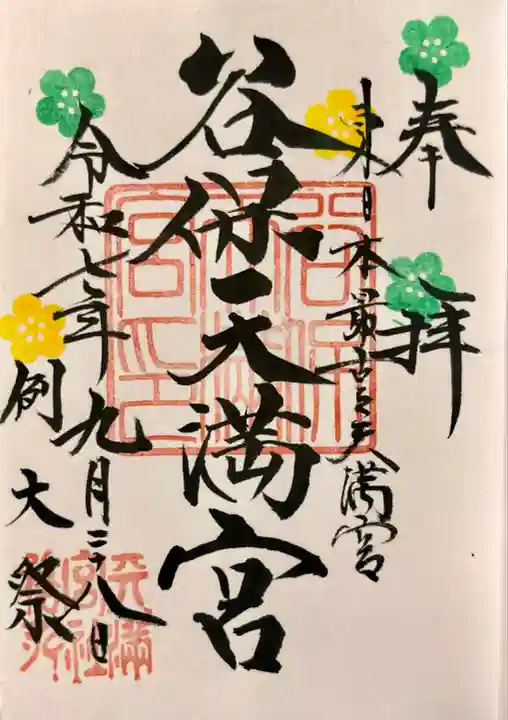 奉拝
東日本最古之天満宮
谷保天満宮
令和七年九月二十八日
例大祭